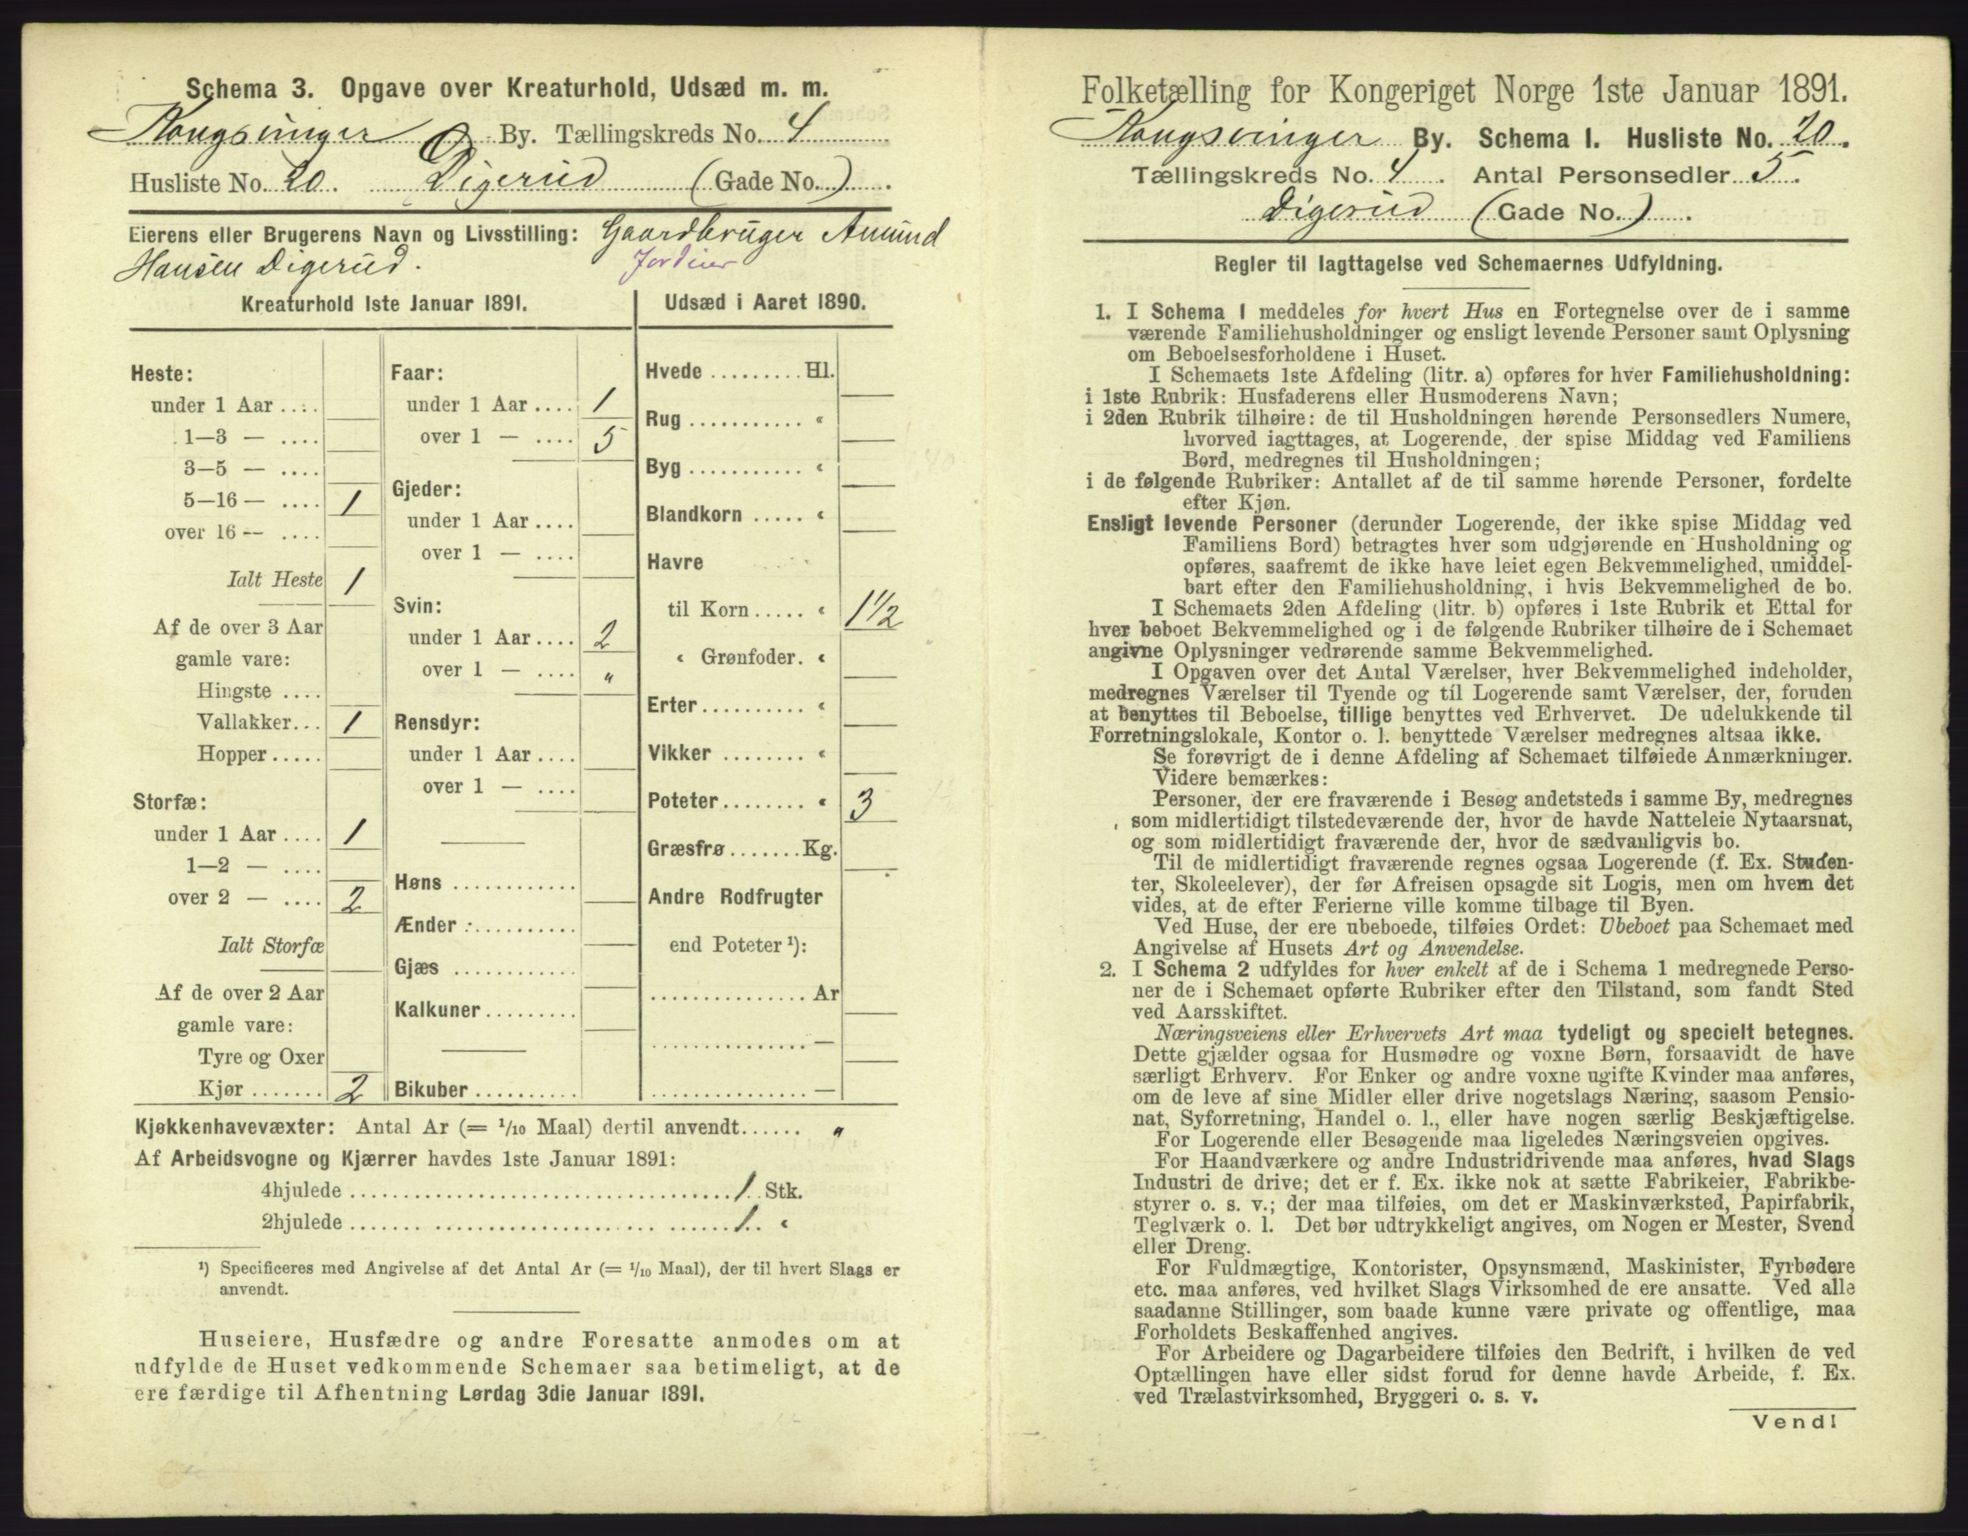 Schema 3. Opgave over Kreaturhold, Udsæd m. m.
Kongsvinger By. Tællingskreds No. 4
Husliste No. 20. Digerud (Gade No. )
Eierens eller Brugerens Navn og Livsstilling: Gaardbruger Amund
Hansen Digerud. Jordeier
Kreaturhold 1ste Januar 1891.
Heste:
under 1 Aar ....
1—3 — ....
3—5 — ....
5—16 — .... 1
over 16 — ....
Ialt Heste 1
Af de over 3 Aar
gamle vare:
Hingste ....
Vallakker... 1
Hopper.....
Storfæ:
under 1 Aar .... 1
1—2 — ....
over 2 — .... 2
Ialt Storfæ
Af de over 2 Aar
gamle vare:
Tyre og Oxer
Kjør ....... 2
Faar:
under 1 Aar .... 1
over 1 — .... 5
Gjeder:
under 1 Aar....
over 1 — ....
Svin:
under 1 Aar.... 2
over 1 — .... „
Rensdyr:
under 1 Aar....
over 1 — ....
Høns ............
Ænder ...........
Gjæs ............
Kalkuner.........
Bikuber..........
Udsæd i Aaret 1890.
Hvede ......... Hl.
Rug ........... “
Byg ........... “
Blandkorn ..... “
Havre
til Korn..... “ 1 1/2
“ Grønfoder. “
Erter.......... “
Vikker ........ “
Poteter........ “ 3
Græsfrø....... Kg.
Andre Rodfrugter
end Poteter ¹):
............... Ar
............... —
............... —
Kjøkkenhavevæxter: Antal Ar (= 1/10 Maal) dertil anvendt...... „
Af Arbeidsvogne og Kjærrer havdes 1ste Januar 1891:
4hjulede ........ 1 Stk.
2hjulede ........ 1. “
¹) Specificeres med Angivelse af det Antal Ar (= 1/10 Maal), der til hvert Slags er
anvendt.
Huseiere, Husfædre og andre Foresatte anmodes om at
udfylde de Huset vedkommende Schemaer saa betimeligt, at de
ere færdige til Afhentning Lørdag 3die Januar 1891.
Folketælling for Kongeriget Norge 1ste Januar 1891.
Kongsvinger By. Schema I. Husliste No. 20.
Tællingskreds No. 4. Antal Personsedler 5.
Digerud (Gade No. ).
Regler til Iagttagelse ved Schemaernes Udfyldning.
1. I Schema 1 meddeles for hvert Hus en Fortegnelse over de i samme
værende Familiehusholdninger og ensligt levende Personer samt Oplysning
om Beboelsesforholdene i Huset.
I Schemaets 1ste Afdeling (litr. a) opføres for hver Familiehusholdning:
i 1ste Rubrik: Husfaderens eller Husmoderens Navn;
i 2den Rubrik tilhøire: de til Husholdningen hørende Personsedlers Numere,
hvorved iagttages, at Logerende, der spise Middag ved Familiens
Bord, medregnes til Husholdningen;
i de følgende Rubriker: Antallet af de til samme hørende Personer, fordelte
efter Kjøn.
Ensligt levende Personer (derunder Logerende, der ikke spise Middag ved
Familiens Bord) betragtes hver som udgjørende en Husholdning og
opføres, saafremt de ikke have leiet egen Bekvemmelighed, umiddel-
bart efter den Familiehusholdning, i hvis Bekvemmelighed de bo.
I Schemaets 2den Afdeling (litr. b) opføres i 1ste Rubrik et Ettal for
hver beboet Bekvemmelighed og i de følgende Rubriker tilhøire de i Schemaet
angivne Oplysninger vedrørende samme Bekvemmelighed.
I Opgaven over det Antal Værelser, hver Bekvemmelighed indeholder,
medregnes Værelser til Tyende og til Logerende samt Værelser, der, foruden
at benyttes til Beboelse, tillige benyttes ved Erhvervet. De udelukkende til
Forretningslokale, Kontor o. l. benyttede Værelser medregnes altsaa ikke.
Se forøvrigt de i denne Afdeling af Schemaet tilføiede Anmærkninger.
Videre bemærkes:
Personer, der ere fraværende i Besøg andetsteds i samme By, medregnes
som midlertidigt tilstedeværende der, hvor de havde Natteleie Nytaarsnat,
og som midlertidigt fraværende der, hvor de sædvanligvis bo.
Til de midlertidigt fraværende regnes ogsaa Logerende (f. Ex. Studen-
ter, Skoleelever), der før Afreisen opsagde sit Logis, men om hvem det
vides, at de efter Ferierne ville komme tilbage til Byen.
Ved Huse, der ere ubeboede, tilføies Ordet: Ubeboet paa Schemaet med
Angivelse af Husets Art og Anvendelse.
2. I Schema 2 udfyldes for hver enkelt af de i Schema 1 medregnede Perso-
ner de i Schemaet opførte Rubriker efter den Tilstand, som fandt Sted
ved Aarsskiftet.
Næringsveiens eller Erhvervets Art maa tydeligt og specielt betegnes.
Dette gjælder ogsaa for Husmødre og voxne Børn, forsaavidt de have
særligt Erhverv. For Enker og andre voxne ugifte Kvinder maa anføres,
om de leve af sine Midler eller drive nogetslags Næring, saasom Pensio-
nat, Syforretning, Handel o. l., eller have nogen særlig Beskjæftigelse.
For Logerende eller Besøgende maa ligeledes Næringsveien opgives.
For Haandværkere og andre Industridrivende maa anføres, hvad Slags
Industri de drive; det er f. Ex. ikke nok at sætte Fabrikeier, Fabrikbe-
styrer o. s. v.; der maa tilføies, om det er Maskinværksted, Papirfabrik,
Teglværk o. l. Det bør udtrykkeligt angives, om Nogen er Mester, Svend
eller Dreng.
For Fuldmægtige, Kontorister, Opsynsmænd, Maskinister, Fyrbødere
etc. maa anføres, ved hvilket Slags Virksomhed de ere ansatte. Ved alle
saadanne Stillinger, som baade kunne være private og offentlige, maa
Forholdets Beskaffenhed angives.
For Arbeidere og Dagarbeidere tilføies den Bedrift, i hvilken de ved
Optællingen have eller sidst forud for denne havde Arbeide, f. Ex.
ved Trælastvirksomhed, Bryggeri o. s. v.
Vend!